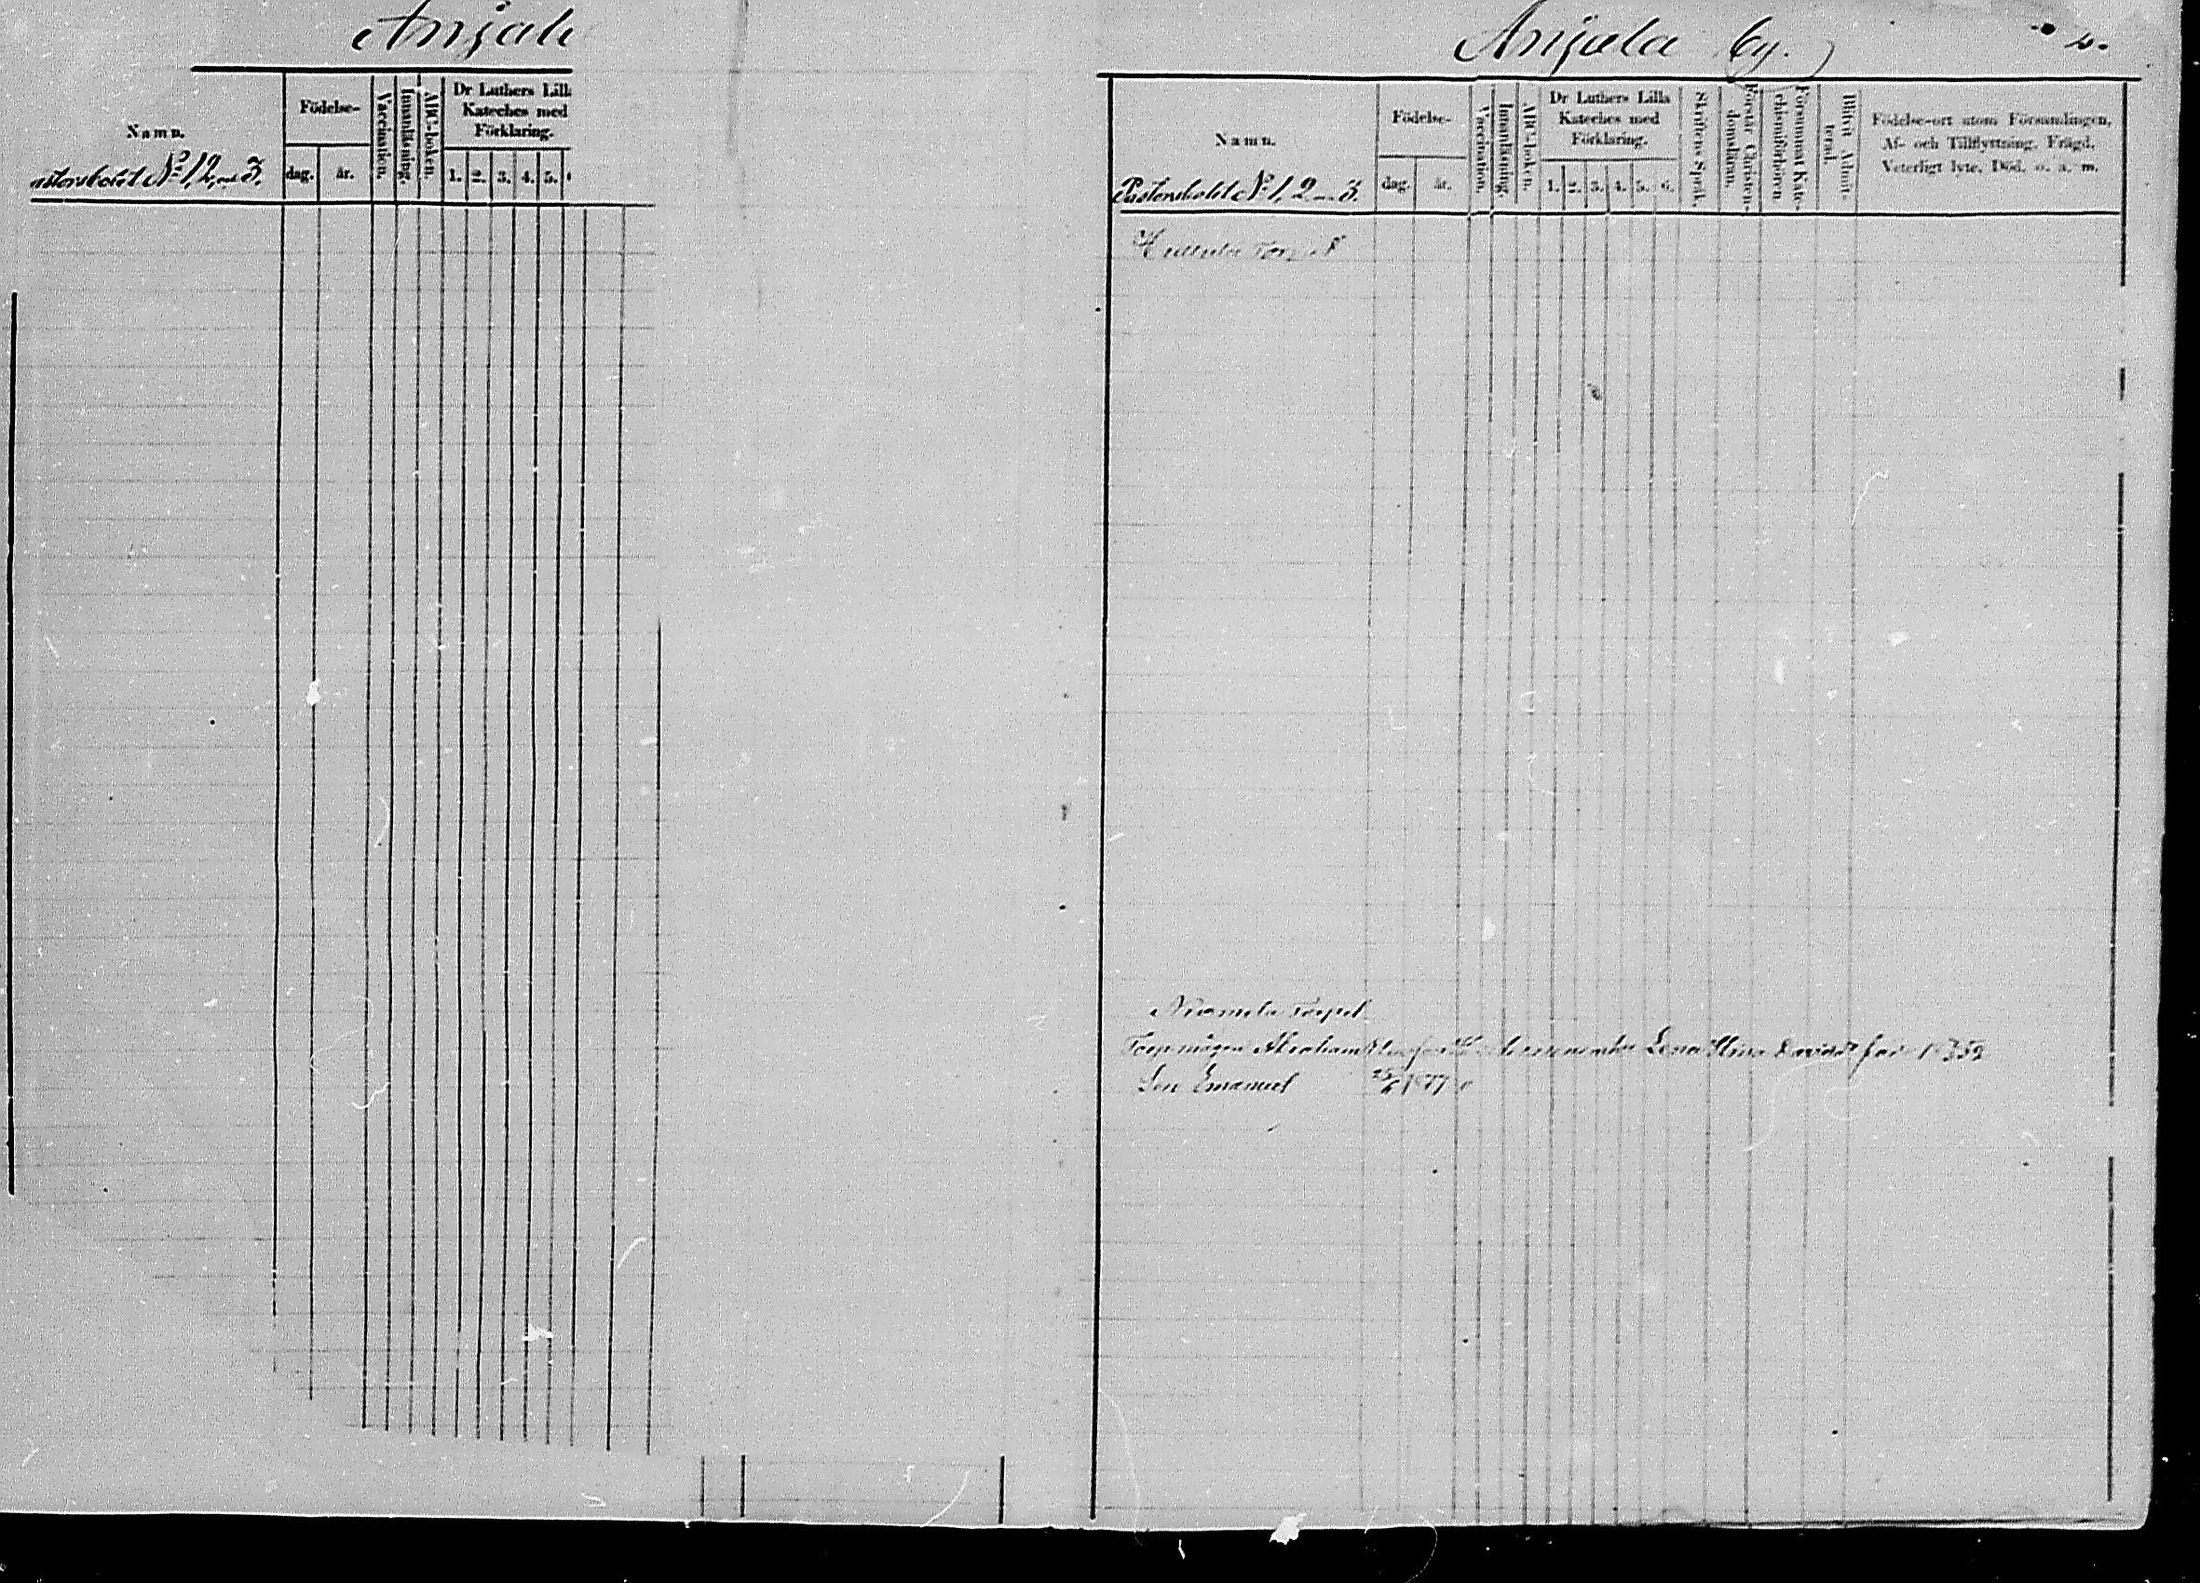 Anjal
Namn.
Födelse-
dag.
år.
Vaccination.
Innanläsning.
ABC-boken.
Dr Luthers Lill
Kateches med
Förklaring.
1. 2. 3. 4. 5.
astorsbolet No 1, 2 3.
Anjala by.
2.
Namn.
Födelse-
dag.
år.
Vaccination.
Innanläsning.
ABC-boken.
Dr Luthers Lilla
Kateches med
Förklaring.
1. 2. 3. 4. 5. 6.
Skriftens Språk.
Förstår Christen-
domsläran.
Försummat Kate-
chismiförhören
Blifvit Admit-
terad.
Födelse-ort utom Församlingen,
Af- och Tillflyttning, Frägd,
Veterligt lyte, Död. o. a. m.
Pastorsbolet No 1, 2 3.
Torp
Torpet
Abraham Lena Stina 352
Son Emanuel 1877